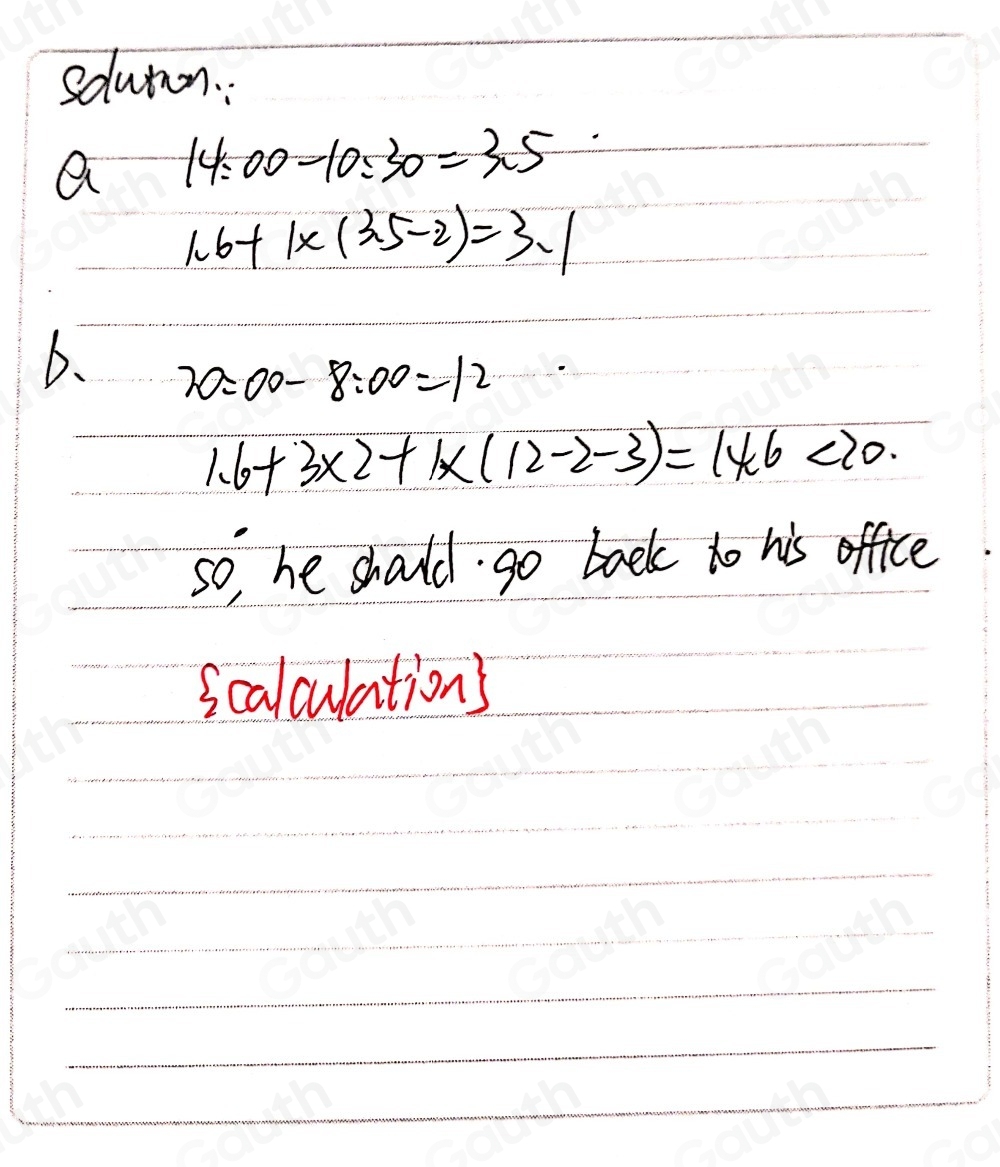 Solution:
a 14:00-10:30=3.5
1.6+1×(3.5-2)=3.1
b. 20:00-8:00=12
1.6+3×2+1×(12-2-3)=14.6<20.
so, he should go back to his office
{calculation}